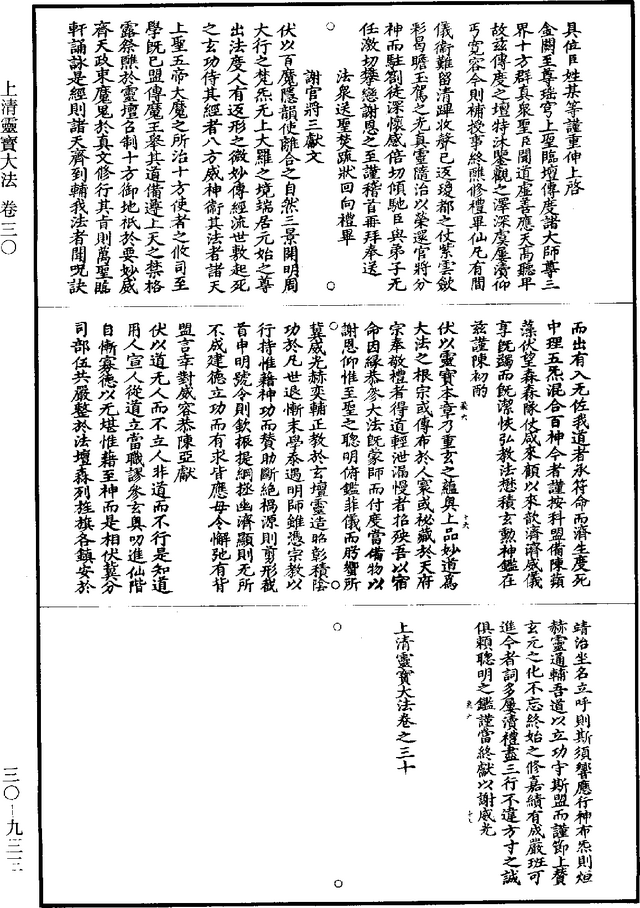 具位臣姓某等謹重伸上啓
金闕至尊瑤穹上聖臨壇傳度諸大師尊三
界十方群真衆聖臣聞道虛善應天高聽卑
故茲傳度之壇特沐鑒觀之澤深虞屢瀆仰
丐寬容今則補授事終醮修禮畢仙凡有間
儀衛難留清蹕收聲已返瓊都之仗紫雲斂
彩曷瞻玉駕之光真靈隨治以榮還官將分
神而駐劄徒深懷感倍切傾馳臣與弟子無
任激切攀戀謝恩之至謹稽首再拜奉送
法衆送聖焚疏狀回向禮畢
謝官將三獻文
伏以百魔隱韻使離合之自然三景開明周
大行之梵炁無上大羅之境端居元始之尊
出法度人有返形之微妙傳經流世敷起死
之玄功侍其經者八方威神衛其法者諸天
上聖五帝大魔之所治十方使者之攸司至
學既已盟傳魔王舉其道備遵上天之禁格
露祭醮於靈壇召制十方御地祇於要妙威
齊天政束魔鬼於真文修行其旨則萬聖臨
軒誦詠是經則諸天齊到輔我法者聞呪訣
而出有入無佐我道者承符命而濟生度死
中理五炁混合百神今者謹按科盟備陳蘋
藻伏望森森隊仗咸來顧以來歆濟濟威儀
享既蠲而既潔恢弘教法懋積玄勳神鑑在
茲謹陳初酌
伏以靈寶本章乃重玄之蘊奧上品妙道為
大法之根宗或傳布於人寰或秘藏於天府
宗奉敬禮者得道輕泄漏慢者招殃吾以宿
命因緣恭參大法既蒙師而付度當備物以
謝恩仰惟至聖之聰明俯鑑菲儀而肹響所
冀威光赫奕輔正教於玄壇靈造昭彰積陰
功於凡世退慚末學忝遇明師雖憑宗教以
行持惟藉神功而贊助斷絕禍源則剪形截
首申明號令則欽振提綱拯幽濟顯則無所
不成建德立功而有求皆應毋令懈弛有背
盟言幸對威容恭陳亞獻
伏以道無人而不立人非道而不行是知道
用人宣人從道立當職謬參玄奧叨進仙階
自慚寡德以無堪惟藉至神而是相伏冀分
司部伍共嚴整於法壇森列旌旗各鎮安於
靖治坐名立呼則斯須響應行神布炁則烜
赫靈通輔吾道以立功守斯盟而謹節上贊
玄元之化不忘終始之修嘉績有成嚴班可
進今者詞多屢瀆禮盡三行不違方寸之誠
俱賴聰明之鑑謹當終獻以謝威光
上清靈寶大法卷之三十
上清靈寶大法 卷三〇
三〇—九三三